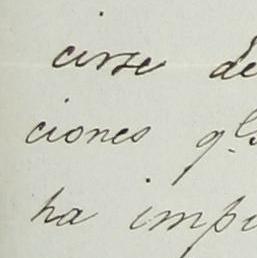 cirse de
ciones q.ls
ha impu